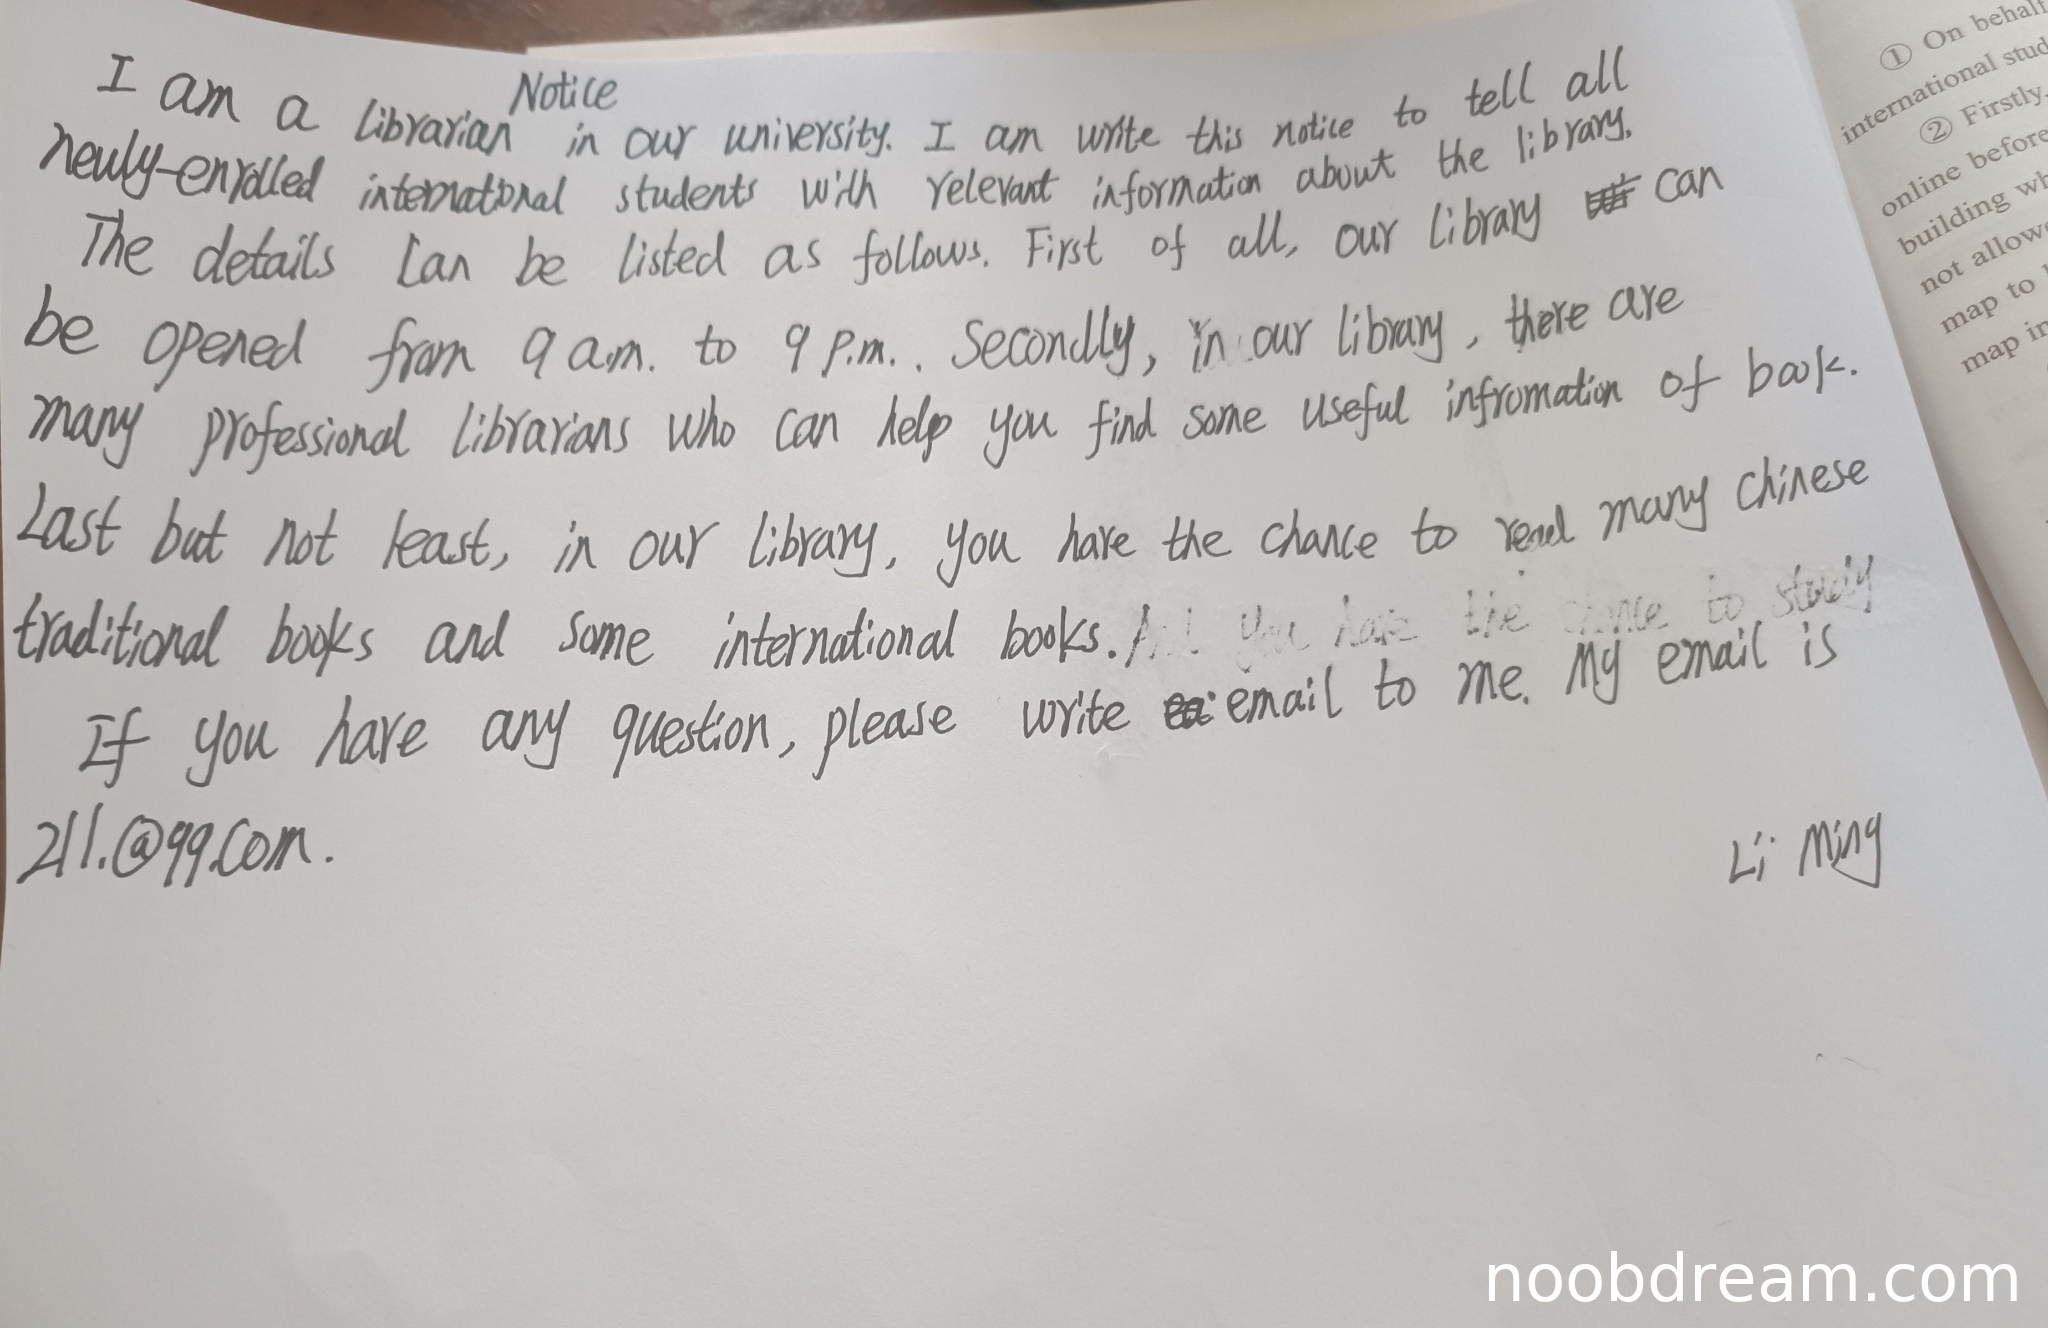 Notice
I am a librarian in our university. I am write this notice to tell all
newly-enrolled international students with relevant information about the library.
The details can be listed as follows. First of all, our library can
be opened from 9 a.m. to 9 p.m.. Secondly, in our library, there are
many professional librarians who can help you find some useful infromation of book.
Last but not least, in our library, you have the chance to read many chinese
traditional books and some international books. And you have the chance to study
If you have any question, please write email to me. My email is
211.@qq.com.
Li Ming
① On behalf
international stud
② Firstly,
online before
building wh
not allowe
map to
map in
noobdream.com